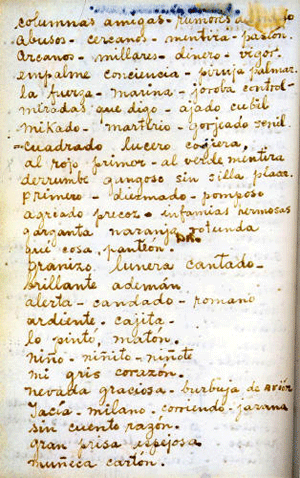 columnas amigas - rumores
abusos - cercanos - mentira - pasion.
arcanos - millares - dinero - vigor.
empalme conciencia - pirija palmar.
la fuerza - marina - joroba control -
miradas que digo - ajado cubil
mikado - martirio - gorjeado senil
cuadrado lucero cojera,
al rojo primor - al verde mentira
derrumbe gungoso sin silla place.
primero - diezmado - pomposo
agriado precoz - infamias hermosas
garganta naranja rotunda
qué cosa panteón.
Granizo lunera cantado -
brillante ademán
alerta - candado - romano
ardiente. cajita.
lo pintó, matón.
niño - niñito - niñote
mi gris corazón.
nevada graciosa - burbuja de
Yacía - milano. corriendo - jarana
sin cuento razón.
gran prisa espejosa
muñeca cartón.